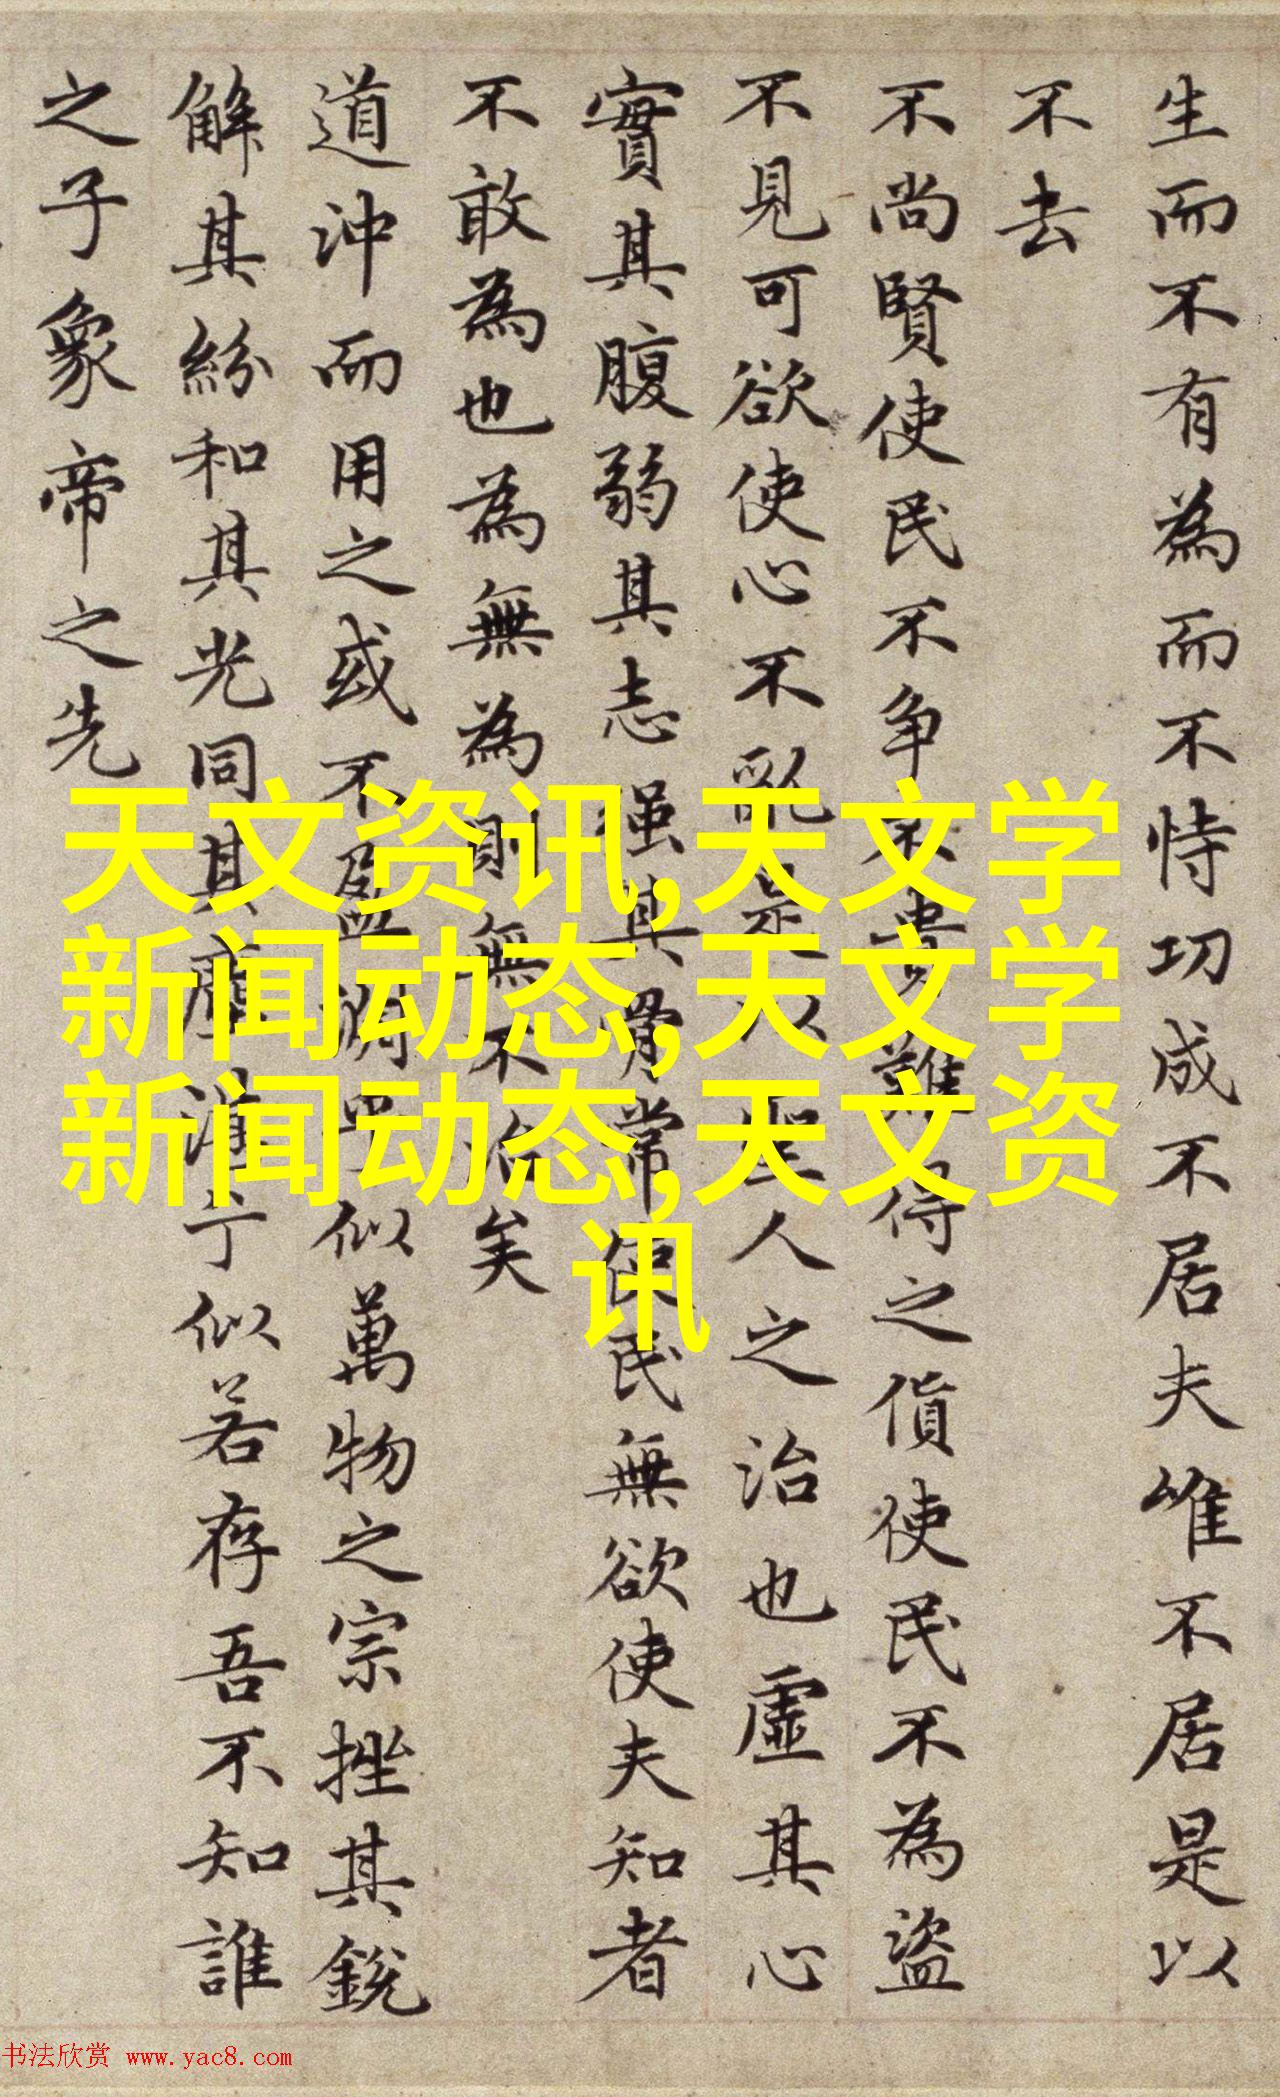 生而不有為而不恃功成不居夫唯不居是以
不去
不尚賢使民不争不貴難得之貨使民不為盗
不見可欲使心不亂是以聖人之治也虛其心
實其腹弱其志强其骨常使民無欲使夫知者
不敢為也為無為則無不治矣
道沖而用之或不盈淵乎似萬物之宗挫其銳
解其紛和其光同其塵湛兮似若存吾不知誰
之子象帝之先
天文资讯,天文学
新闻动态,天文学
新闻动态,天文资
讯
书法欣赏 www.yac8.com